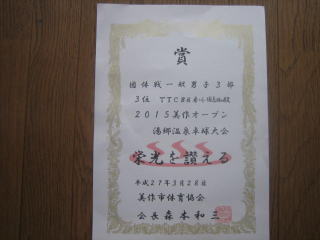 賞
団体戦一般男子3部
3位 TTC
2015美作オープン
湯郷温泉卓球大会
栄光を讃える
平成27年3月28日
美作市体育協会
会長森本和三